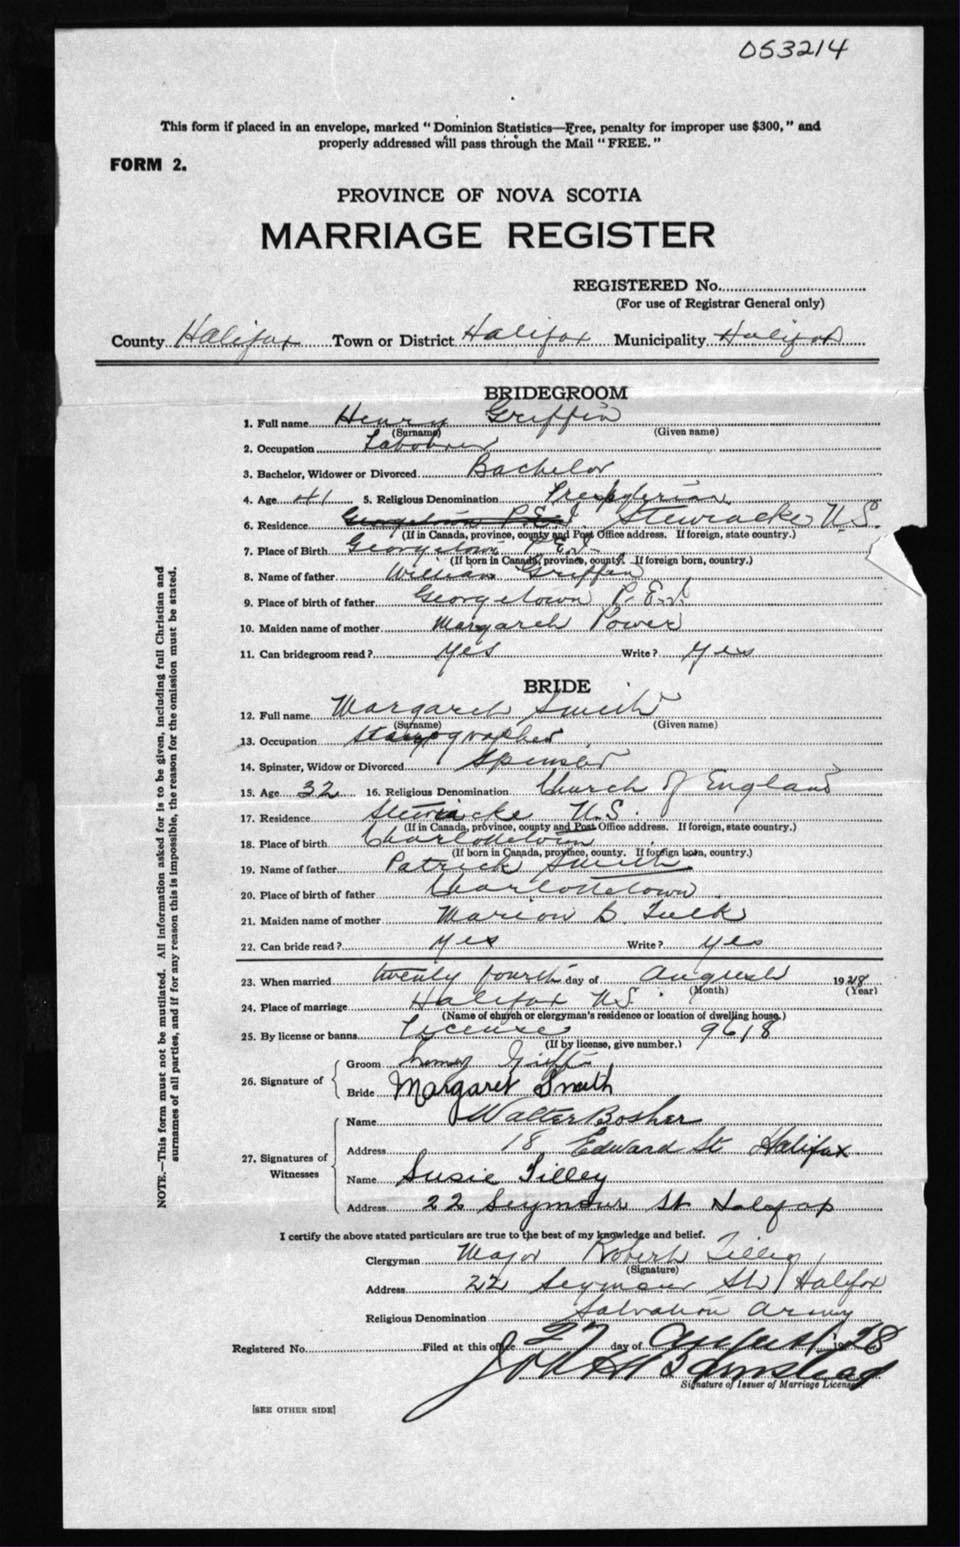 053214
This form if placed in an envelope, marked "Dominion Statistics—Free, penalty for improper use $300," and
properly addressed will pass through the Mail "FREE."
FORM 2.
PROVINCE OF NOVA SCOTIA
MARRIAGE REGISTER
REGISTERED No.
(For use of Registrar General only)
County Halifax Town or District Halifax Municipality Halifax
BRIDEGROOM
1. Full name Henry Griffin
(Surname) (Given name)
2. Occupation Labourer
3. Bachelor, Widower or Divorced Bachelor
4. Age 41 5. Religious Denomination Presbyterian
6. Residence Georgetown P.E.I. Stewiacke N.S.
(If in Canada, province, county and Post Office address. If foreign, state country.)
7. Place of Birth Georgetown P.E.I.
(If born in Canada, province, county. If foreign born, country.)
8. Name of father William Griffin
9. Place of birth of father Georgetown P.E.I.
10. Maiden name of mother Margaret Power
11. Can bridegroom read? Yes Write? Yes
BRIDE
12. Full name Margaret Smith
(Surname) (Given name)
13. Occupation
14. Spinster, Widow or Divorced Spinster
15. Age 32 16. Religious Denomination Church of England
17. Residence Stewiacke N.S.
(If in Canada, province, county and Post Office address. If foreign, state country.)
18. Place of birth Charlottetown
(If born in Canada, province, county. If foreign born, country.)
19. Name of father Patrick Smith
20. Place of birth of father Charlottetown
21. Maiden name of mother Marion B. Tulk
22. Can bride read? Yes Write? Yes
23. When married twenty fourth day of August 1928
(Month) (Year)
24. Place of marriage Halifax N.S.
(Name of church or clergyman's residence or location of dwelling house.)
25. By license or banns License 9618
(If by license, give number.)
26. Signature of
Groom Henry Griffin
Bride Margaret Smith
27. Signatures of Witnesses
Name Walter Bosher
Address 18 Edward St Halifax
Name Susie Tilley
Address 22 Seymour St Halifax
I certify the above stated particulars are true to the best of my knowledge and belief.
Clergyman Major Robert Tilley
(Signature)
Address 22 Seymour St Halifax
Religious Denomination Salvation Army
Registered No. Filed at this office 27 day of August 1928
John H Barnstead
Signature of Issuer of Marriage License
[SEE OTHER SIDE]
NOTE.—This form must not be mutilated. All information asked for is to be given, including full Christian and
surnames of all parties, and if for any reason this is impossible, the reason for the omission must be stated.